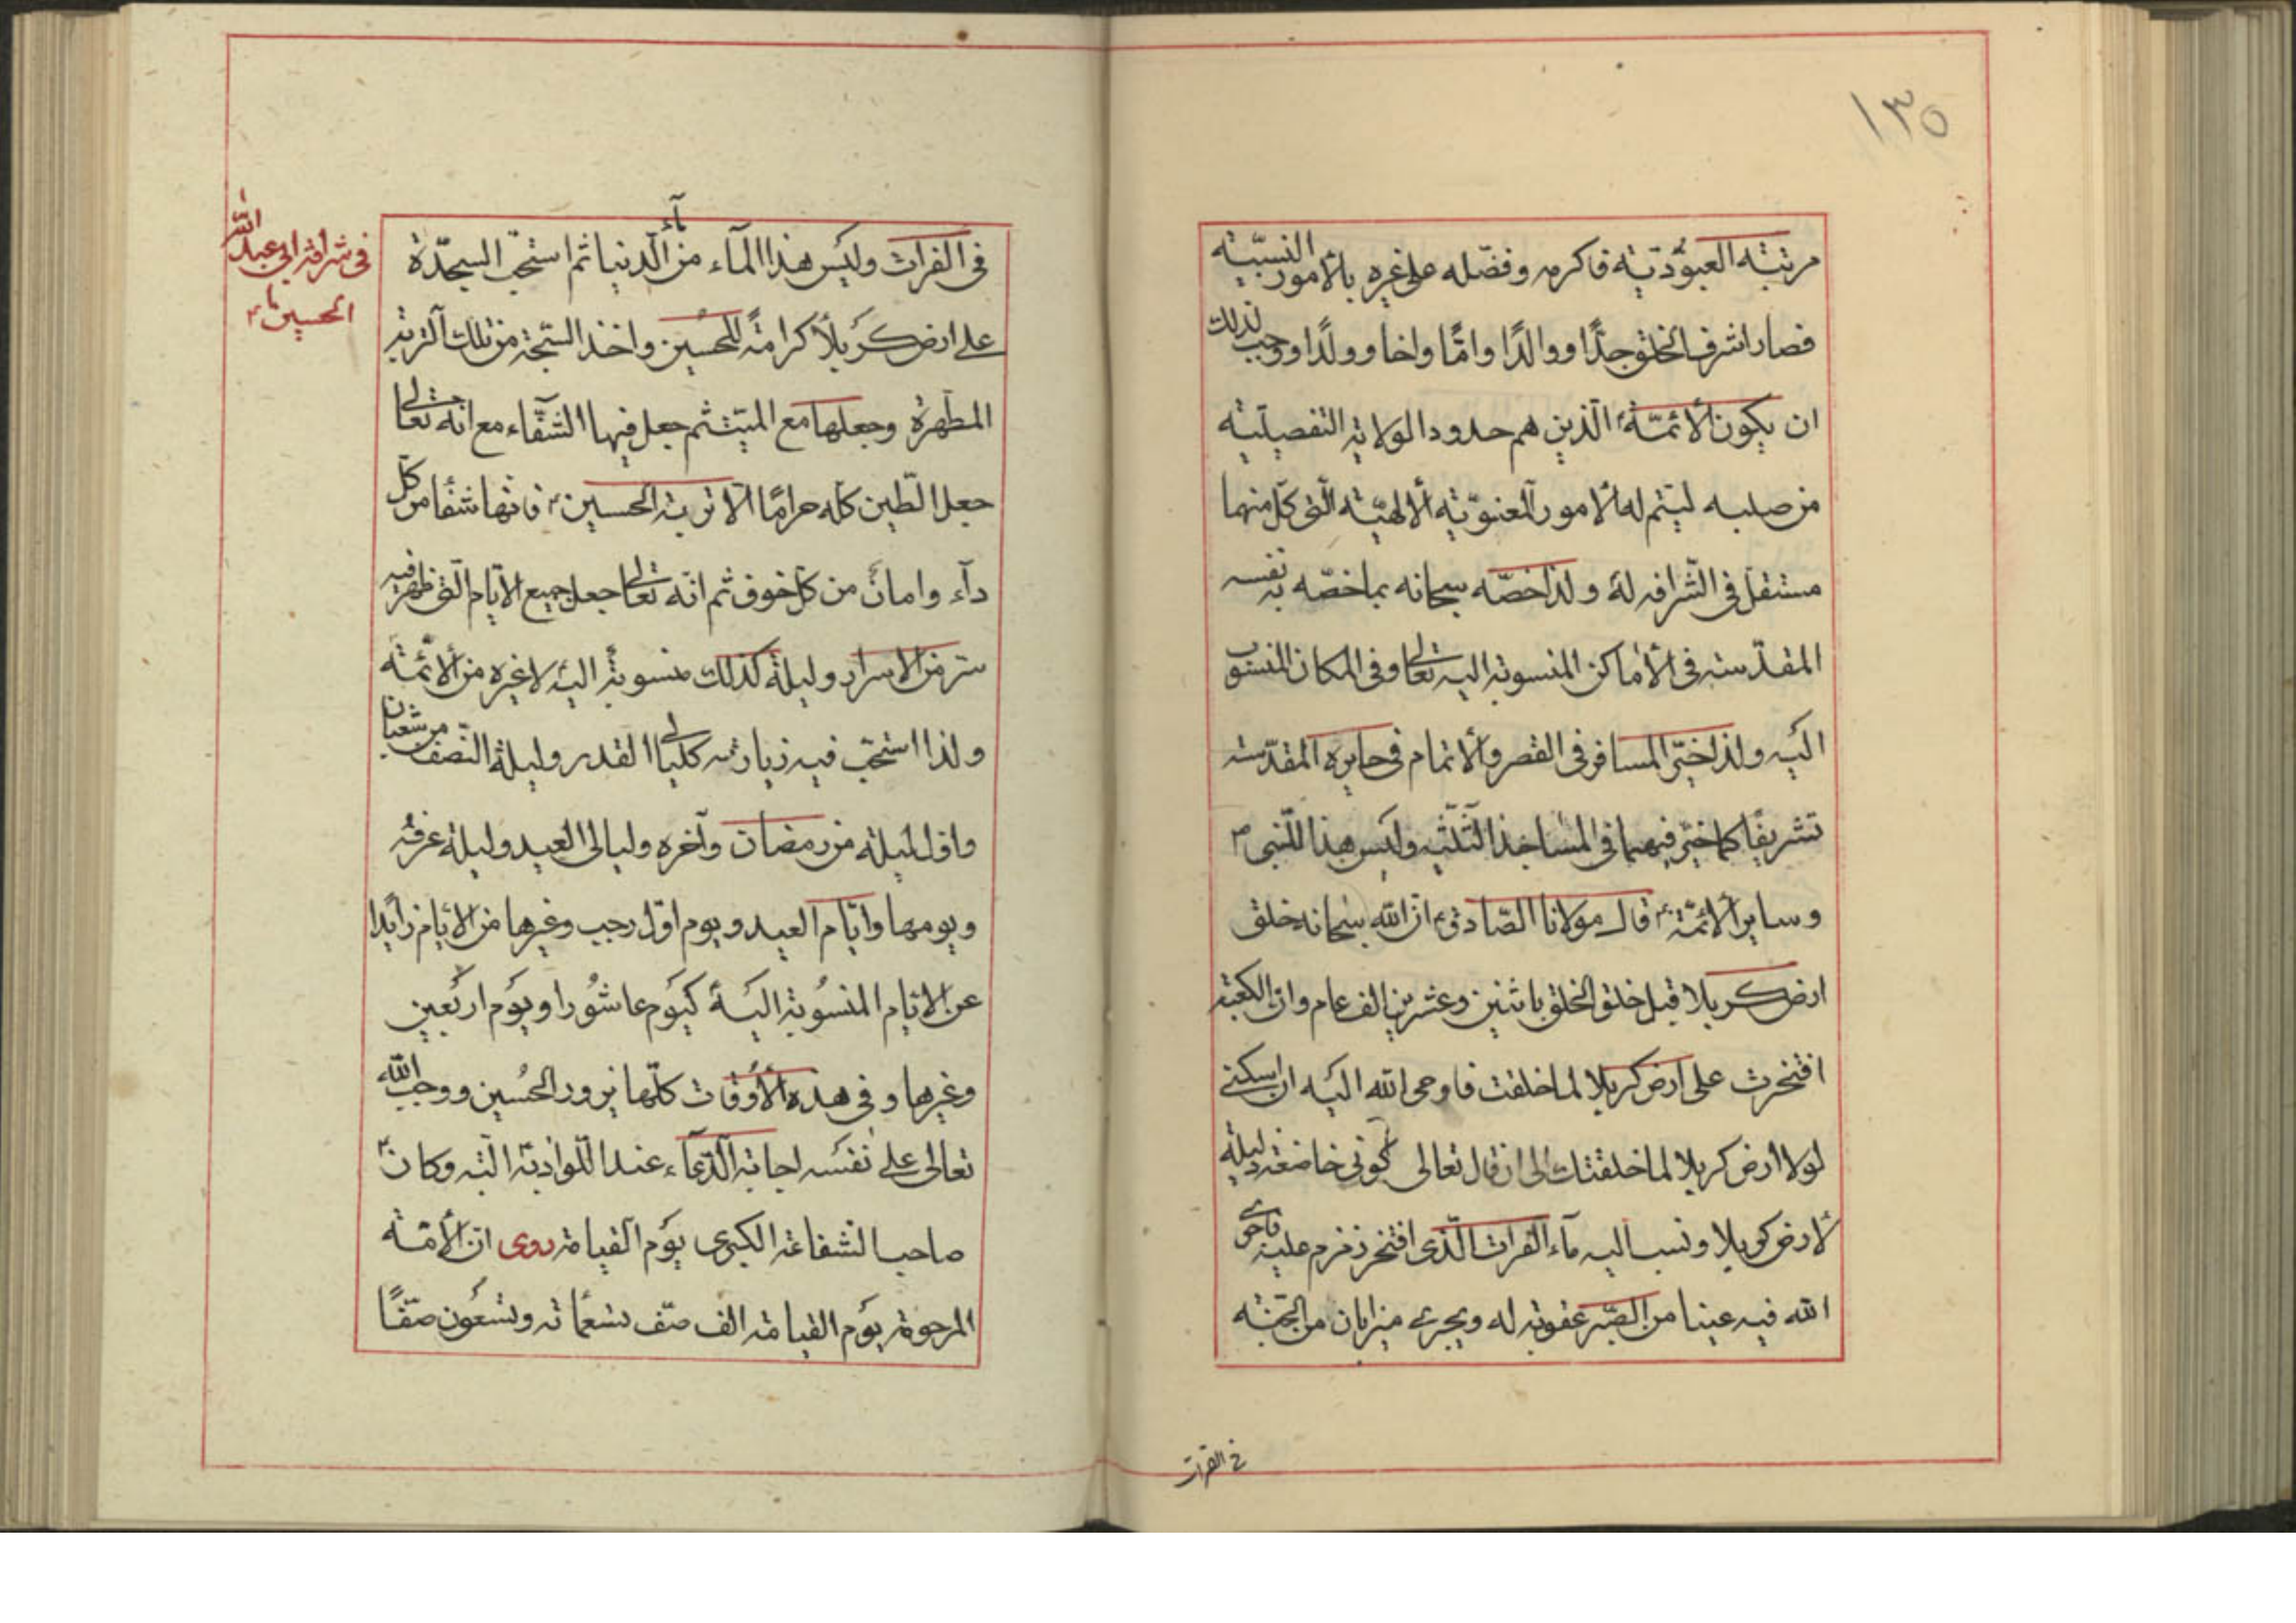 ١٣٥
مرتبته العبوديّة فاكرمه وفضّله على غيره بالأمور النسبّية
فصار اشرف الخلق جدًّا ووالدًا وامًّا واخا وولدًا ووجب لذلك
ان يكون الأئمّة الّذين هم حدود الولاية التفصيليّة
من صلبه ليتم له الأمور المعنويّة الألهيّة الّتى كلّ منها
مستقل فى الشّرافه له ولذا خصّه سبحانه بما خصّه به نفسه
المقدّسه فى الأماكن المنسوبة اليه تعالى وفى المكان المنسوب
اليه ولذا خيّر المسافر فى القصر والأتمام فى حايره المقدّسه
تشريفًا كما خيّر فيهما فى المساجد الثّلثه وليس هذا للنّبى ص
وساير الأئمّة ع قال مولانا الصّادق ع ان الله سبحانه خلق
ارض كربلا قبل خلق الخلق باثنين وعشرين الف عام وان الكعبة
افتخرت على ارض كربلا لما خلقت فاوحى الله اليه ان اسكتى
لولا أرض كربلا لما خلقتك الى ان قال تعالى كونى خاضعة ذليلة
لأرض كربلا ونسب اليه مآء الفرات الّذى افتخر زمزم عليه فاجرى
الله فيه عينا من الصّبر عقوبة له ويجرى ميزابان من الجّنة
فى الفرات
فى الفرات وليس هذا المآء من مآء الّدنيا ثم استحّب السجّدة
على ارض كربلأ كرامةً للحُسين واخذ السّبحة من تلك التربة
المطّهرة وجعلها مع الميّت ثم جعل فيها الشّفآء مع انّه تعالى
جعل الطّين كلّه حرامًا الّا تربة الحسين ع فانّها شفًا من كلّ
دآء وامانٌ من كلّ خوف ثم انّه تعالى جعل جميع الأيّام الّتى ظهر فيه
سّر من الاسرار وليلة كذلك منسوبةً اليه لا غيره من الأئمّة
ولذا استحّب فيه زيارته كليالى القدر وليلة النّصف من شعبان
واوّل ليلة من رمضان وآخره وليالى العيد وليلة عرفة
ويومها وايّام العيد ويوم اوّل رجب وغيرها من الايام زايدا
عن الايام المنسُوبة اليه كيَوم عاشُورا ويَوم اربَعين
وغيرها وفى هذه الأوقات كلّها يزور الحُسين ووجب الله
تعالى على نفسه اجابة الّدعآء عند اللّواذ به البّتة وكان
صاحب الشفاعة الكبرى يوَم القيامة روى ان الأمّة
المرحومة يوَم القيامة الف صّف تسعمأة وتسعُون صّفًا
فى شرافة ابى عبد الله
الحسين ع